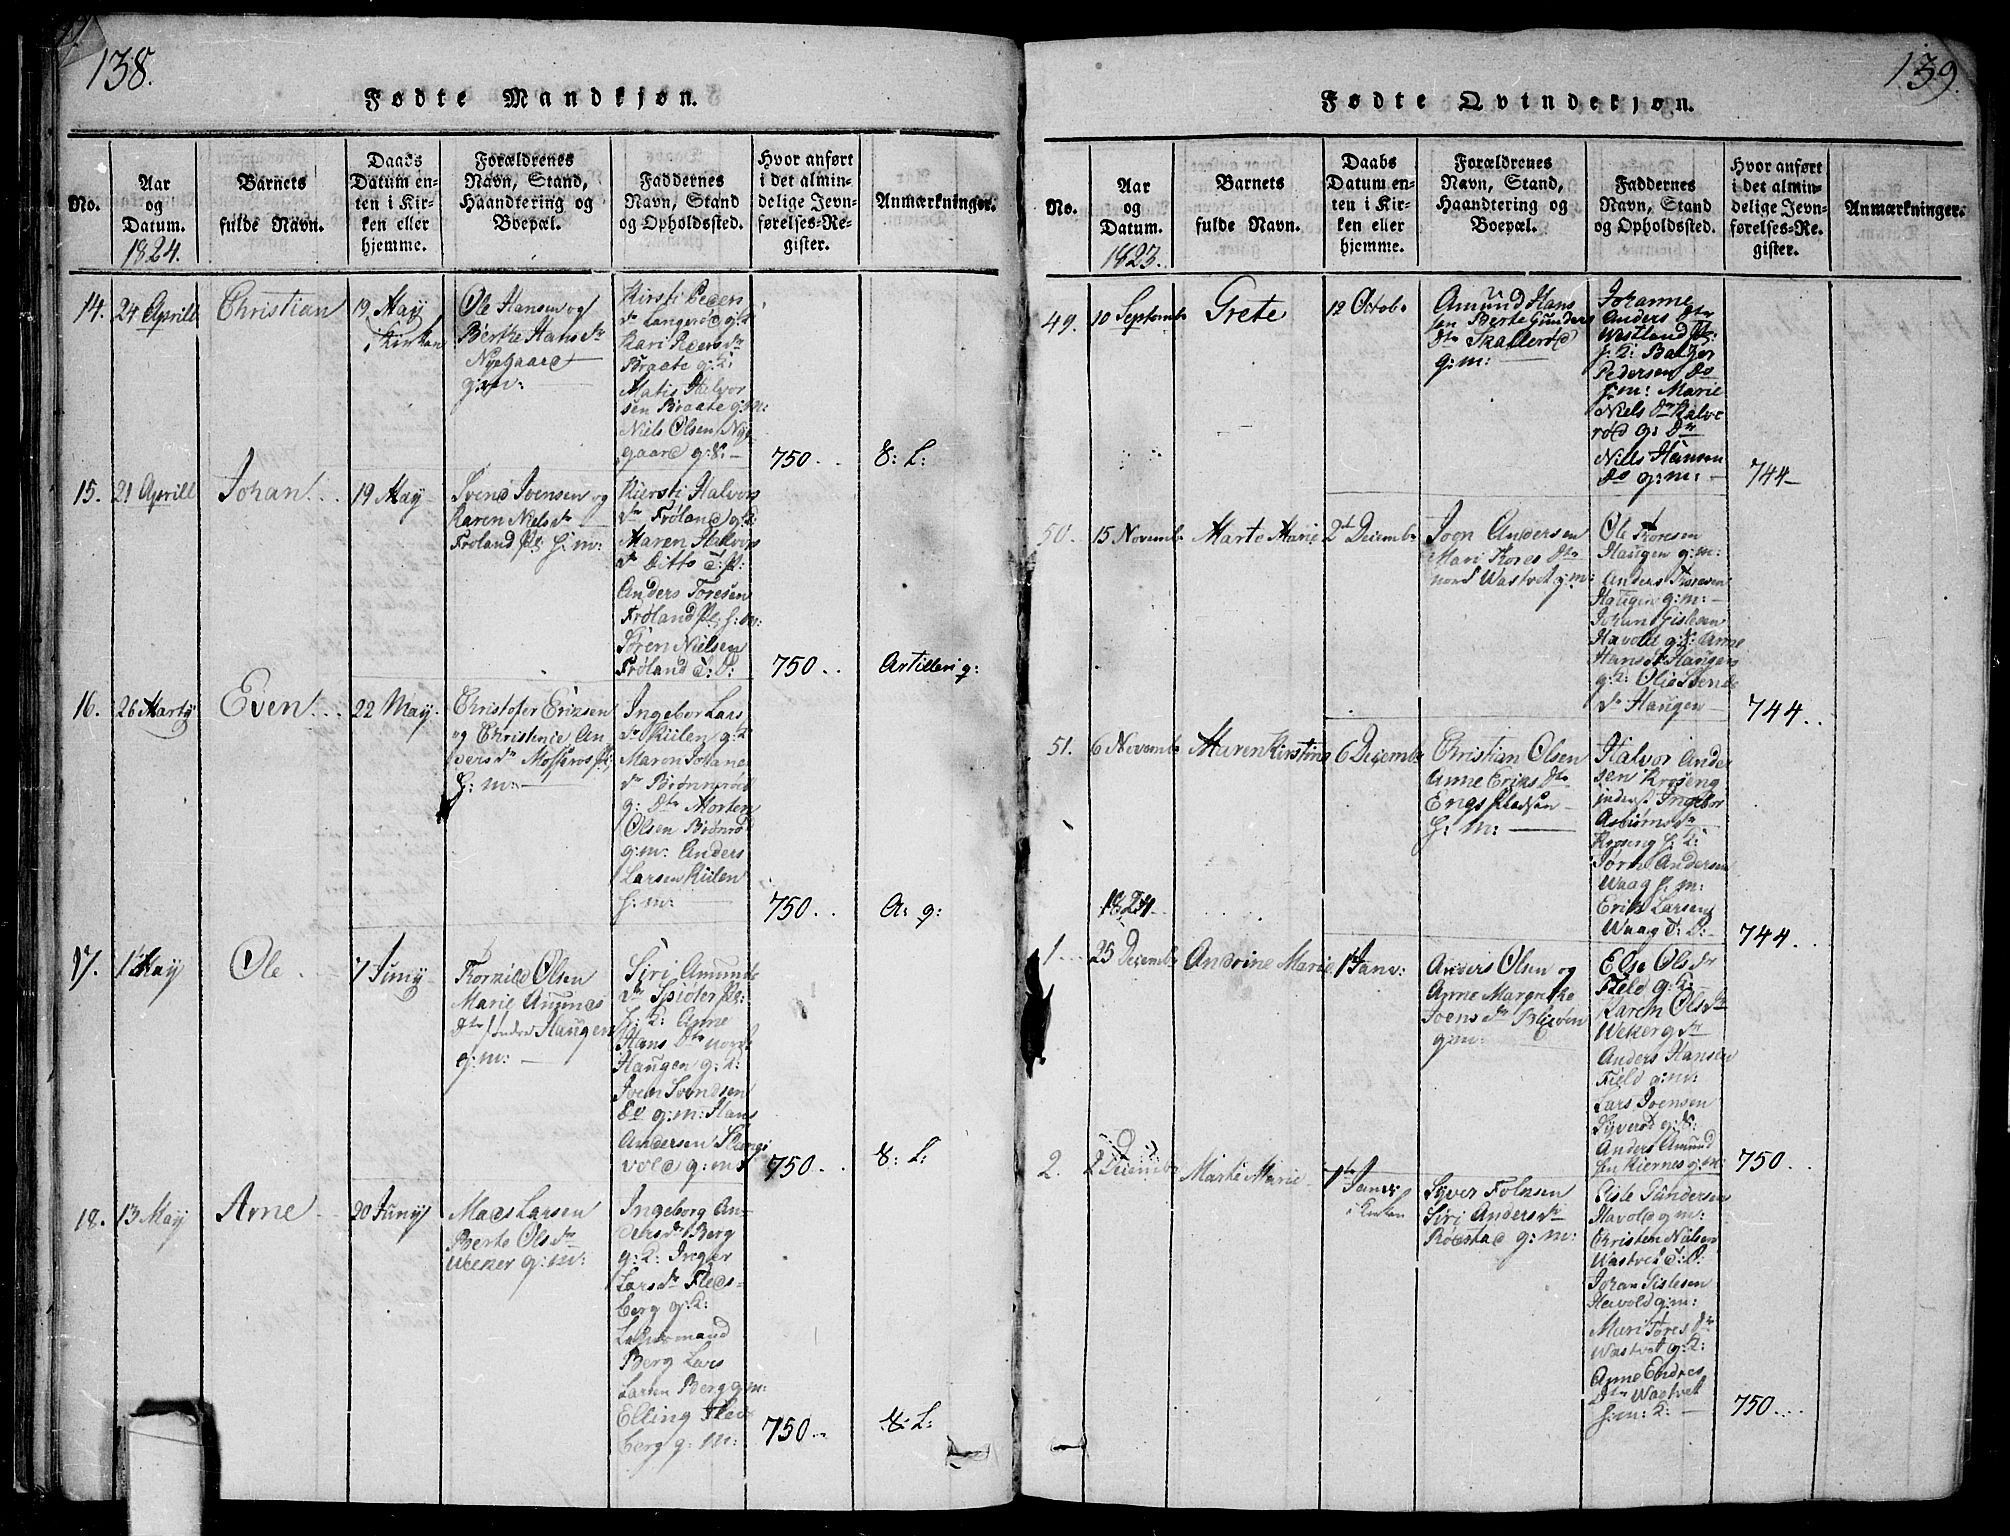 138.
Fødte Mandkjøn.
No.
Aar
og
Datum.
1824.
Barnets
fulde Navn.
Daabs
Datum en-
ten i Kir-
ken eller
hjemme.
Forældrenes
Navn, Stand,
Haandtering og
Boepæl.
Faddernes
Navn, Stand
og Opholdssted.
Hvor anført
i det almin-
delige Jevn-
førelses-Re-
gister.
Anmærkninger.
14.
24 Aprill
Christian
19 May
i Kirken
Ole Hansen og
Berthe Hans dr
Nygaard
g:m:
Kirsti Peders
dr Langerød g:K:
Kari Peders dr
Braate g:K:
Matis Halvor
sen Braate g:m:
Niels Olsen Ny
gaard g:K: —
750..
8: L:
15.
21 Aprill
Johan
19 May
Svend Svensen og
Karen Niels dr
Frøland Pl: h:m:
Kiersti Halvors
dr Frøland g:K:
Maren Halvors
dr Ditto T: P:
Anders Toresen
Frøland Pl: h:m:
Søren Nielsen
Frøland T: D:
750..
Artilleri g:
16.
26 Marty
Even
22 May
Christofer Eriksen
og Christenie An
ders dr Mosseros Pl:
h: m: —
Ingebor Lars
dr Kiilen g:K
Maren Johane
dr Biønnerød
g: Dtr Morten
Olsen Biønrød
g:m: Anders
Larsen Kiilen
h: m:
750..
A: g:
17.
1 May
Ole
7 Juny
Torkild Olsen
Marie
dtr Haugen
g:m: —
Siri Amunds
dr Spiøter Pl:
h: K: Anne
Hans Dtr nord
Haugen g: K:
Sven Svendsen
Do g:m: Hans
Andersen
vold g:m:
750..
8: L:
18.
13 May
Arne
20 Juny
Mads Larsen
Berte Ols dr
Weker g:m:
Ingeborg An-
ders dr Berg
g:K: Inger
Lars dr Fleds-
berg g:K:
Berg Lars
Larsen Berg g:m:
Elling Fleds
berg g: m:
750..
8: L:
139.
Fødte Qvindekjøn.
No.
Aar
og
Datum.
1823.
Barnets
fulde Navn.
Daabs
Datum en-
ten i Kir-
ken eller
hjemme.
Forældrenes
Navn, Stand,
Haandtering og
Boepæl.
Faddernes
Navn, Stand
og Opholdssted.
Hvor anført
i det almin-
delige Jevn-
førelses-Re-
gister.
Anmærkninger.
49.
10 Septembr
Grete
12 Octobr
Amund Hans
sen Berte Gunders
Dtr Skallerød
g:m:
Johanne
Anders Dtr
Westland Pl:
h: K: Balzer
Pedersen Do
h:m: Marie
Niels Dtr Kalve
rød g: Dr
Niels Hansen
Do g:m: —
744 —
50.
15 Novembr
Marte Marie
2d Decembr
Joon Andersen
Mari Tores Dtr
nord Wastvet g:m:
Ole Toresen
Haugen g:m:
Anders Toresen
Haugen g:m: —
Johan Gislesen
Havold g:K: Anne
Hans dr Haugen
g:K: Olia Svends
dr Haugen —
744..
51.
6 Novembr
Maren Kirstine
6 Decembr
Christian Olsen
Anne Eriks Dtr
Engs Pladsen
h: m: —
Halvor Ander
sen Kroseng
inderst Ingebor
Asbiørns dr
Kroseng h: K:
Jørn Andersen
Waag h: m:
Erik Larsen
Waag T: D: —
744..
1824.
1
25 Decembr
Andrine Marie
1 Janv:
Anders Olsen og
Anne Margrethe
Svens dr Blixøen
g:m:
Else Ols dr
Field g:K:
Karen Ols dr
Weker g: dr
Anders Hansen
Field g:m:
Lars Svensen
Syverød g:K:
Anders Amund
sen Kiernes g:m:
750..
2.
2 Decembr
Marte Marie
1te Janv:
i Kirken
Syver Folmsen
Siri Anders dr
Røestad g:m:
Gisle Gundersen
Havold g:m:
Christen Nilsen
Wastvet T: D:
Johan Gislesen
Havold g:m:
Mari Tores dr
Wastvet g:K:
Anne Endres
Dtr Wastvet
h:m: K: —
750..